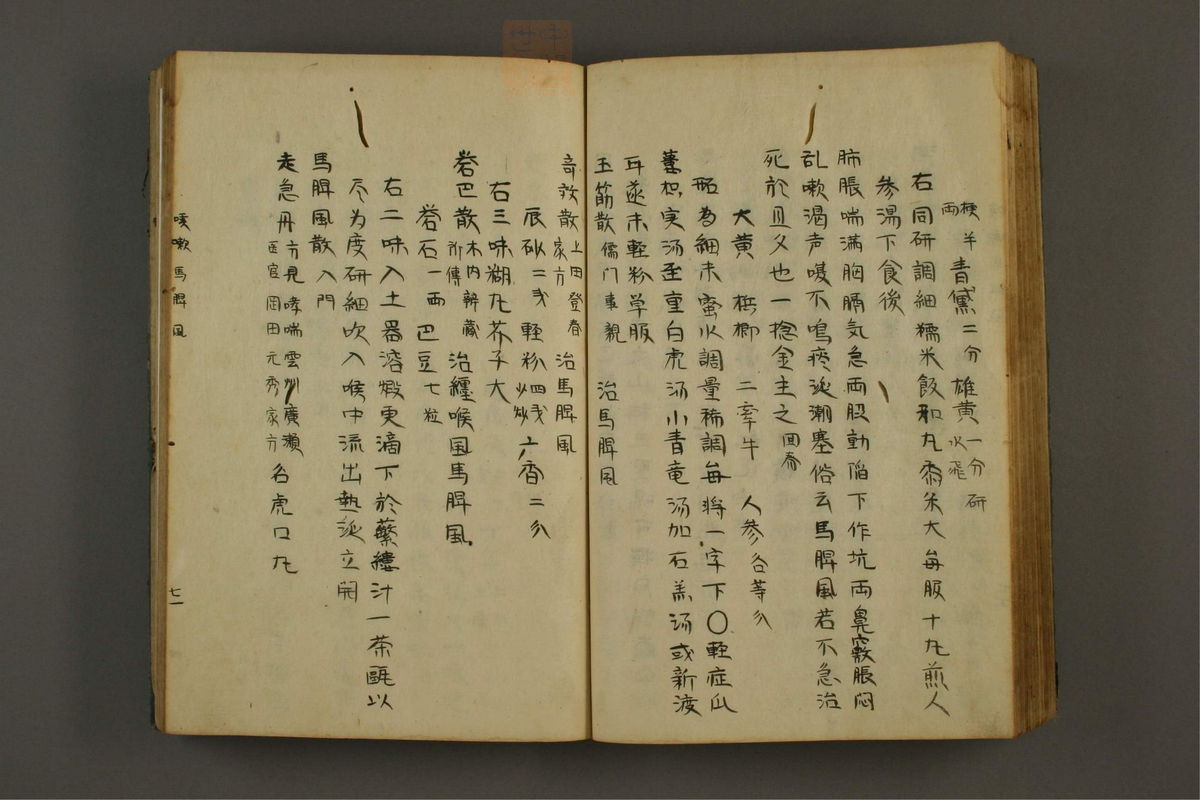 梗 半両 青黛二分 雄黄一分 水飛 研
右同研調細糯米飯和丸黍米大毎服十丸煎人
参湯下食後
肺脹喘満胸膈気急両股動陥下作坑両鼻竅脹悶
乱嗽渇声嗄不鳴痰涎潮塞俗云馬脾風若不急治
死於旦夕也一捻金主之 回春
大黄 梹榔 二牽牛 人参各等分
右為細末蜜水調量稀調毎将一字下〇軽症山
枳実湯至重白虎湯小青竜湯加石羔湯或新渡
甘遂末軽粉単服
玉筋散 儒門事親 治馬脾風
奇效散 上田登春家方 治馬脾風
辰砂二戔 軽粉四戔 少炒 丁香二分
右三味糊丸芥子大
礬巴散 木内辨蔵所傳 治纏喉風馬脾風
礬石一両 巴豆七粒
右二味入土器溶煅更滴下於蘩縷汁一茶甌以
尽为度研細吹入喉中流出熱涎立開
馬脾風散 入門
走急丹 方見哮喘雲州廣瀬医官岡田元秀家方 名虎口丸
咳嗽 馬脾風
七一